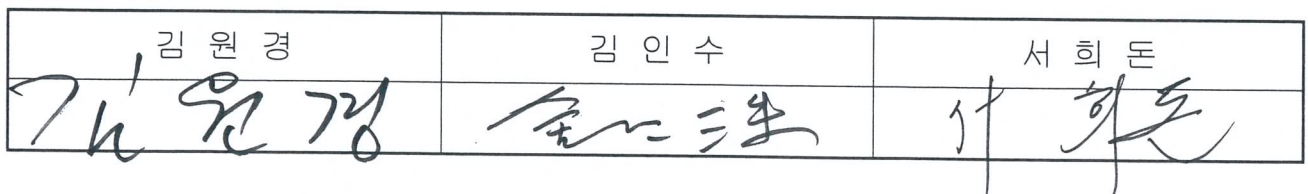 김 원 경 김 인 수 서 희 돈
김 원 경 金仁洙 서 희 돈